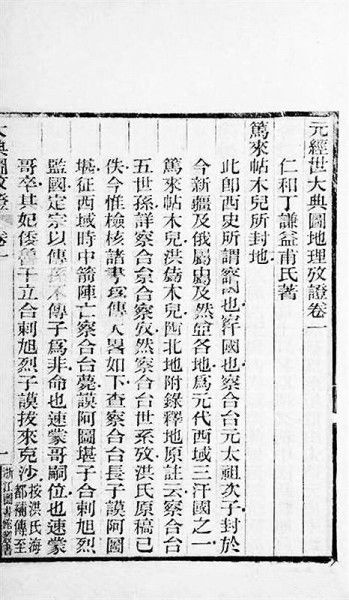 元經世大典圖地理攷證卷一
仁和丁謙益甫氏著
篤來帖木兒所封地
此卽西史所謂也國也察合台元太祖次子封於
今新疆及俄屬及然各地爲元代西域三汗國之一
篤來帖木兒洪木兒西北地附錄釋地原註云察合台
五世孫詳察合台攷然察合台世系攷洪氏原稿已
佚今惟檢核諸書傳畧如下查察合台長子謨阿圖
堪征西域時中箭陣亡察合台薨謨阿圖堪子合剌旭烈
監國定宗以傳孫不傳子爲非命也速蒙哥嗣位也速蒙
哥卒其妃倭魯干立合剌旭烈子謨拔來克沙
按洪氏海
都補傳至
大典圖攷證 卷一
一
浙江圖書館叢書